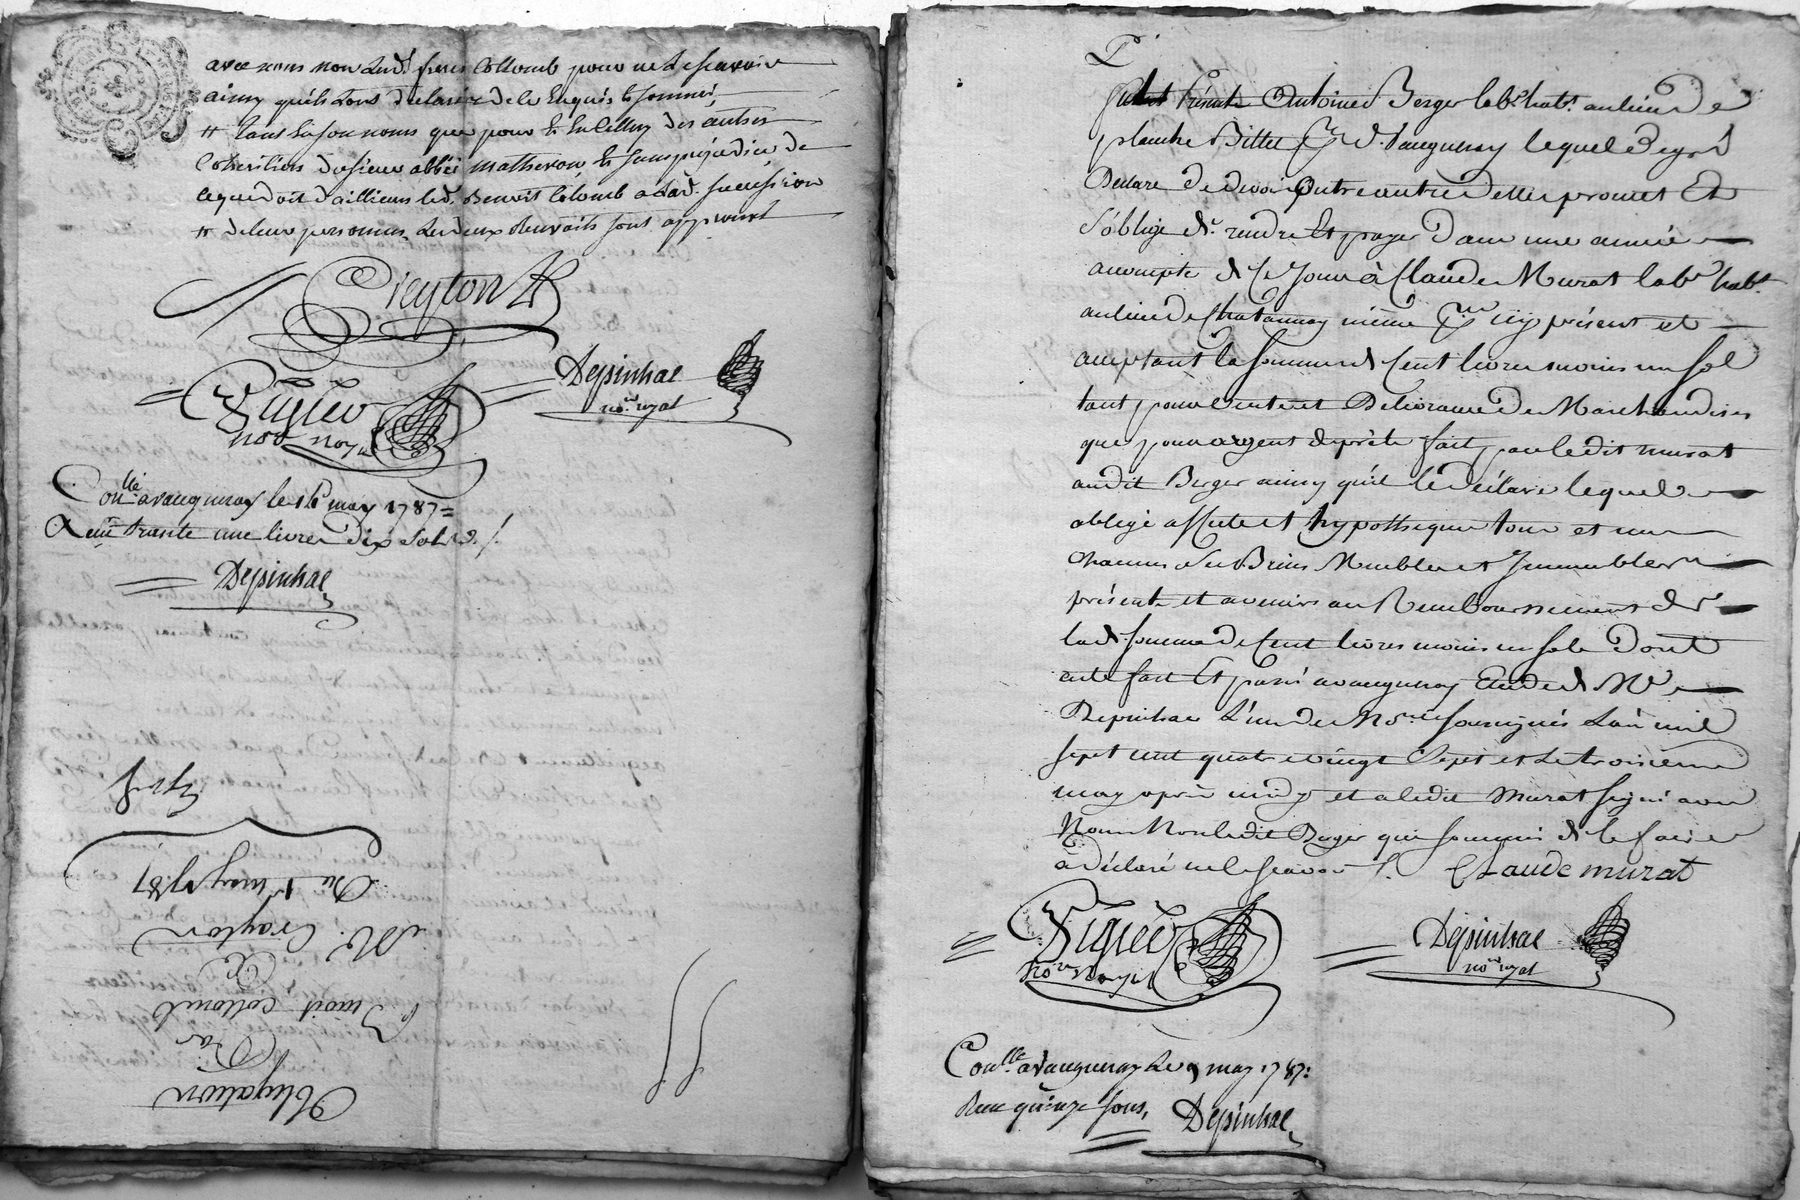 avec nous non lesd. freres Collomb pour ne le scavoir
ainsy qu'ils l'ont declaré de ce enquis et sommés,
# tant en son nom que pour et en celluy des autres
Cohéritiers du sieur abbé matheron, et sans préjudice de
ce que doit d'ailleurs led. Benoit Colomb a lad. succession
# de leurs personnes, les deux renvoits sont approuvés
Creyton
Depinhac
nore. royal
Vigier
nore. Royal
Conllé. a vaugneray le may 1787 =
Reçu trante une livres dix sols
Depinhac
Expé
Du may 1787
Mr. Crayton
à
Benoit collomb
Par
Obligation
Fut Présent Antoine Berger labr. habt. au lieu de
planche Billet psse. d. Vaugneray lequel de gré
Declare devoir outre autre dette promet Et
s'oblige de. rendre Et payer Dans une année
a compte de ce jour à Claude Murat labr. habt.
au lieu de Chatannay même psse. icy présent et
acceptant la somme de Cent livres moins un sol
tant pour vente et Délivrance de Marchandises
que pour argent de prêt fait par ledit murat
audit Berger ainsy qu'il le déclare lequel
oblige affecte et hypotheque tous et un
chacuns ses Biens Meubles et Immeubles
présents et avenirs au Remboursement de
lad. somme de Cent livres moins un sol Dont
acte fait Et passé a vaugneray Etude de Me.
Depinhac L'un des Nores. soussignés L'an mil
sept cent quatre vingt Sept et le troisieme
may après midy et a ledit Murat signé avec
Nous Non ledit Berger qui sommé de le faire
à déclaré ne le scavoir
CLaude murat
Vigier
nore. Royal
Depinhac
nore. royal
Conllé. a Vaugneray Le 9 may 1787:
Reçu quinze sous,
Depinhac